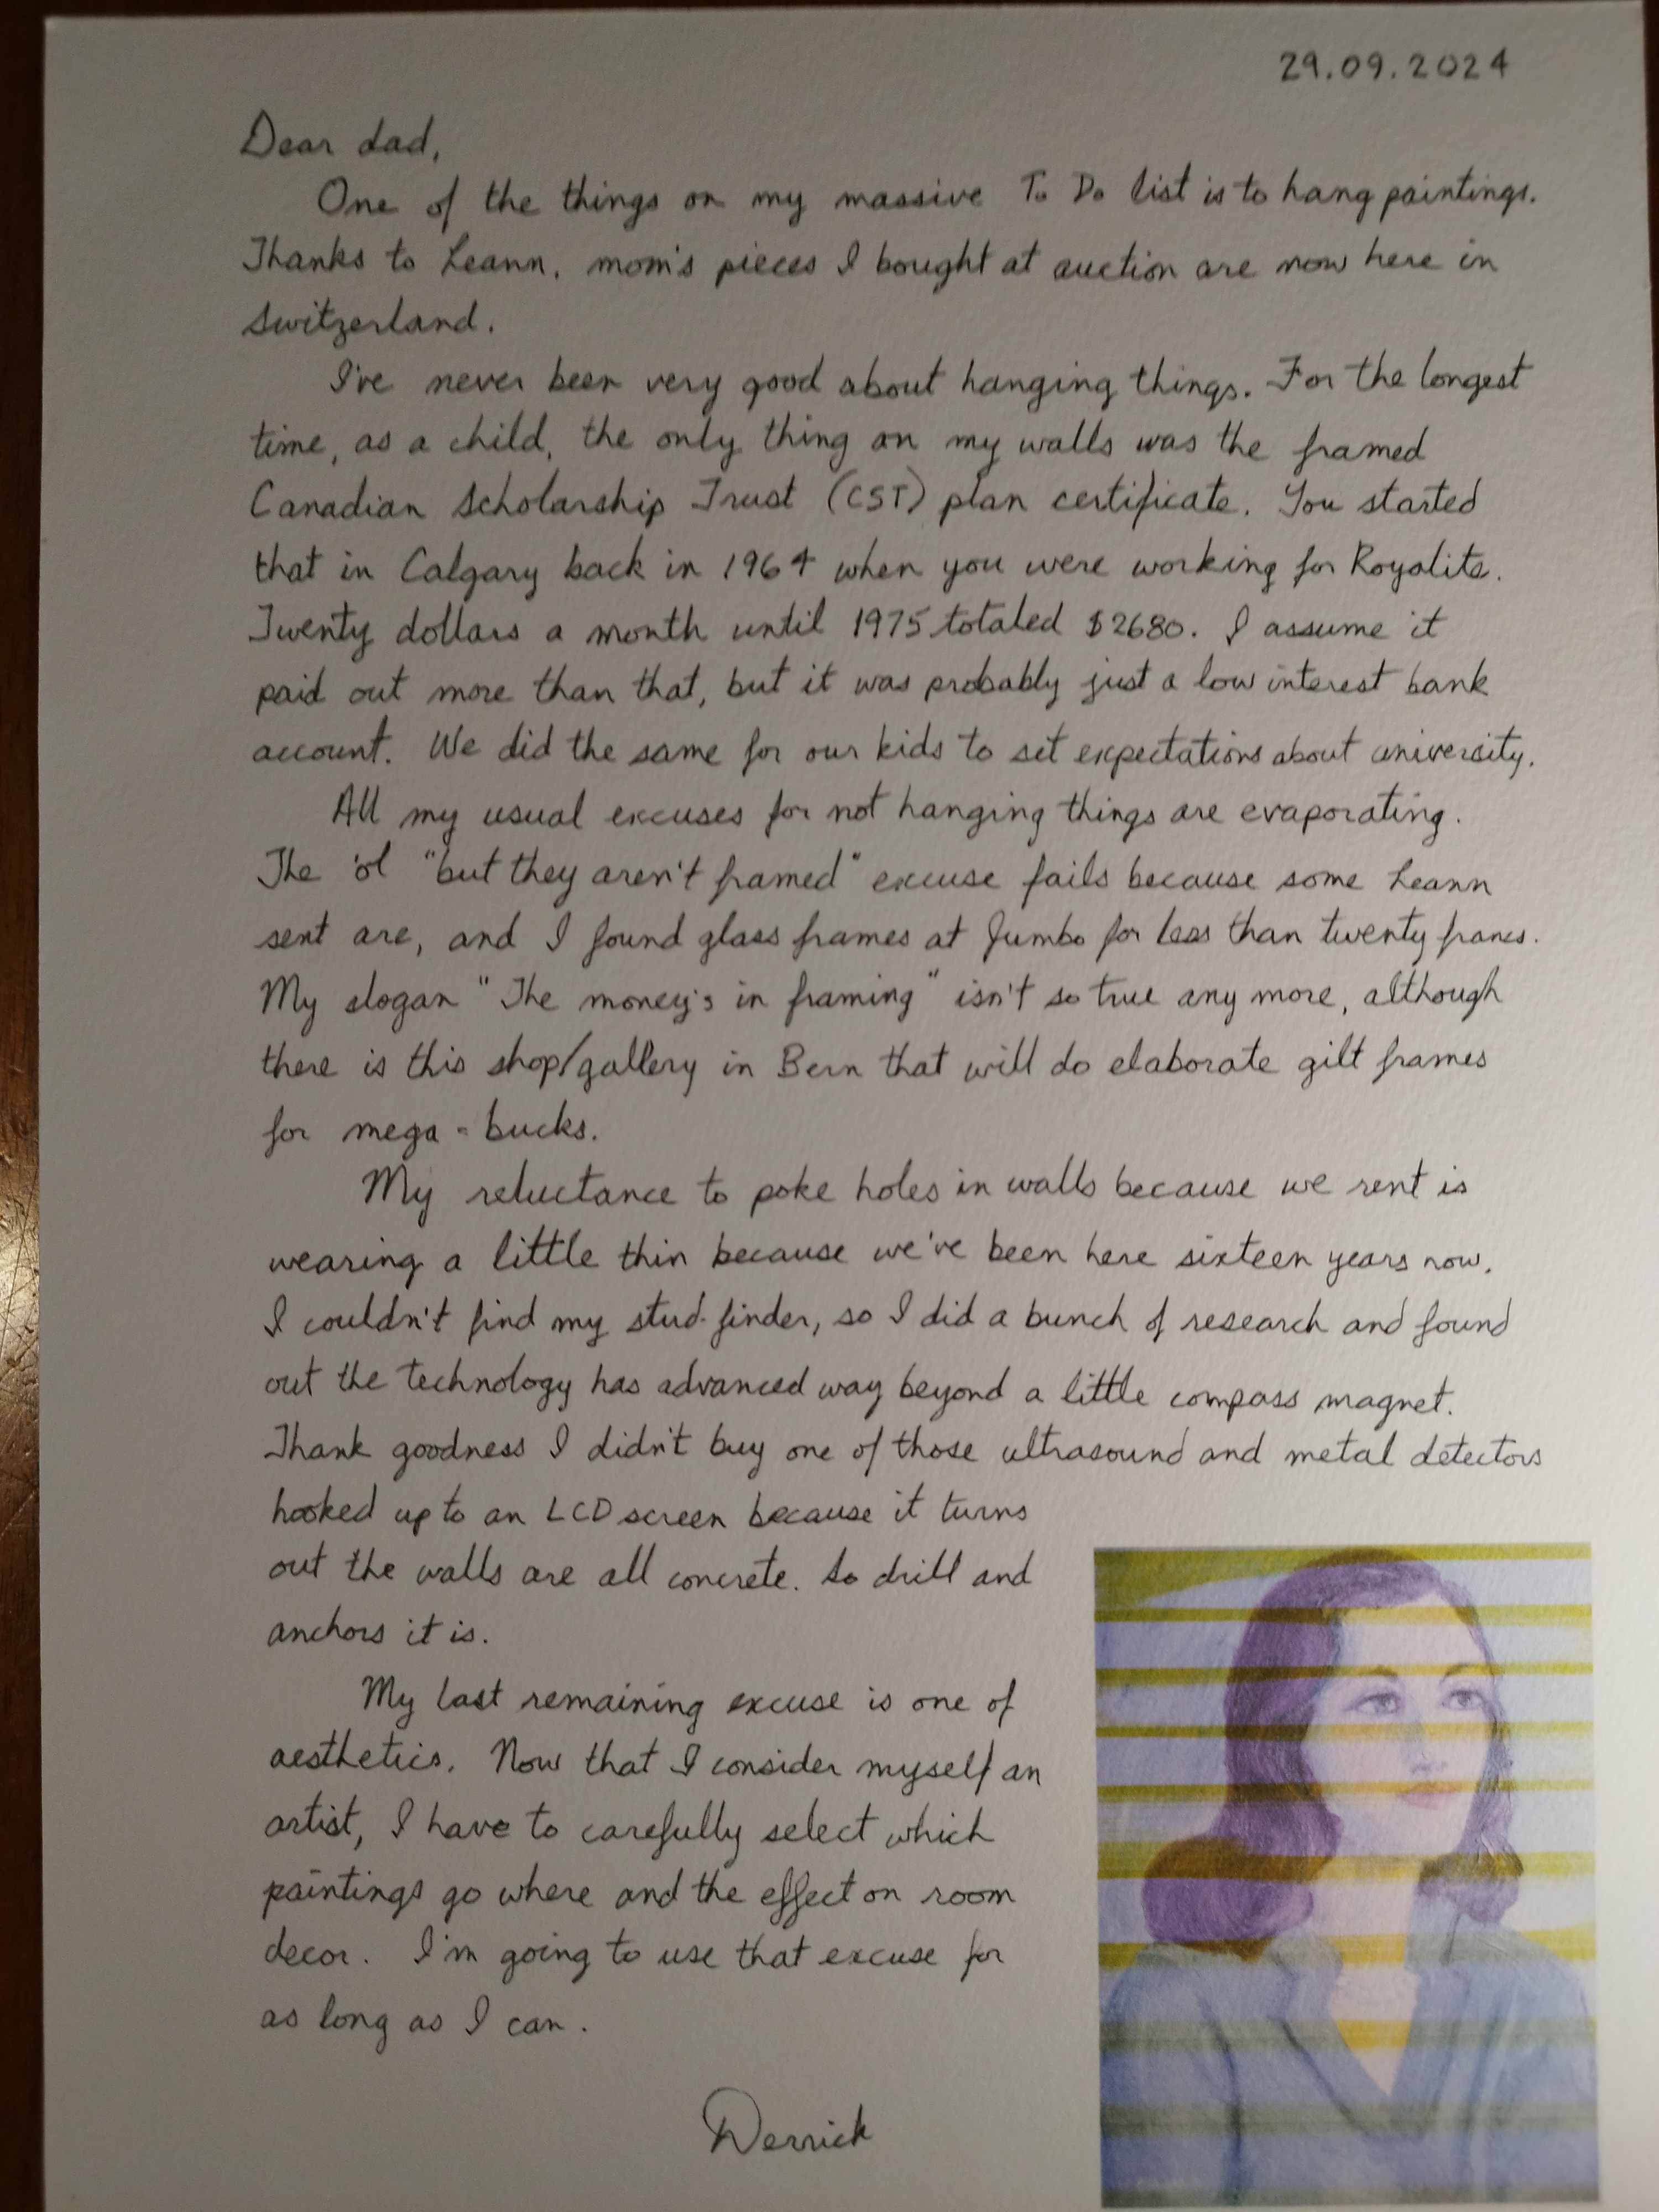 29.09.2024
Dear dad,
One of the things on my massive To Do list is to hang paintings.
Thanks to Leann, mom's pieces I bought at auction are now here in
Switzerland.
I've never been very good about hanging things. For the longest
time, as a child, the only thing on my walls was the framed
Canadian Scholarship Trust (CST) plan certificate. You started
that in Calgary back in 1964 when you were working for Royalite.
Twenty dollars a month until 1975 totaled $2680. I assume it
paid out more than that, but it was probably just a low interest bank
account. We did the same for our kids to set expectations about university.
All my usual excuses for not hanging things are evaporating.
The 'ol "but they aren't framed" excuse fails because some Leann
sent are, and I found glass frames at Jumbo for less than twenty francs.
My slogan "The money's in framing" isn't so true any more, although
there is this shop/gallery in Bern that will do elaborate gilt frames
for mega-bucks.
My reluctance to poke holes in walls because we rent is
wearing a little thin because we've been here sixteen years now.
I couldn't find my stud-finder, so I did a bunch of research and found
out the technology has advanced way beyond a little compass magnet.
Thank goodness I didn't buy one of those ultrasound and metal detectors
hooked up to an LCD screen because it turns
out the walls are all concrete. So drill and
anchors it is.
My last remaining excuse is one of
aesthetics. Now that I consider myself an
artist, I have to carefully select which
paintings go where and the effect on room
decor. I'm going to use that excuse for
as long as I can.
Derrick